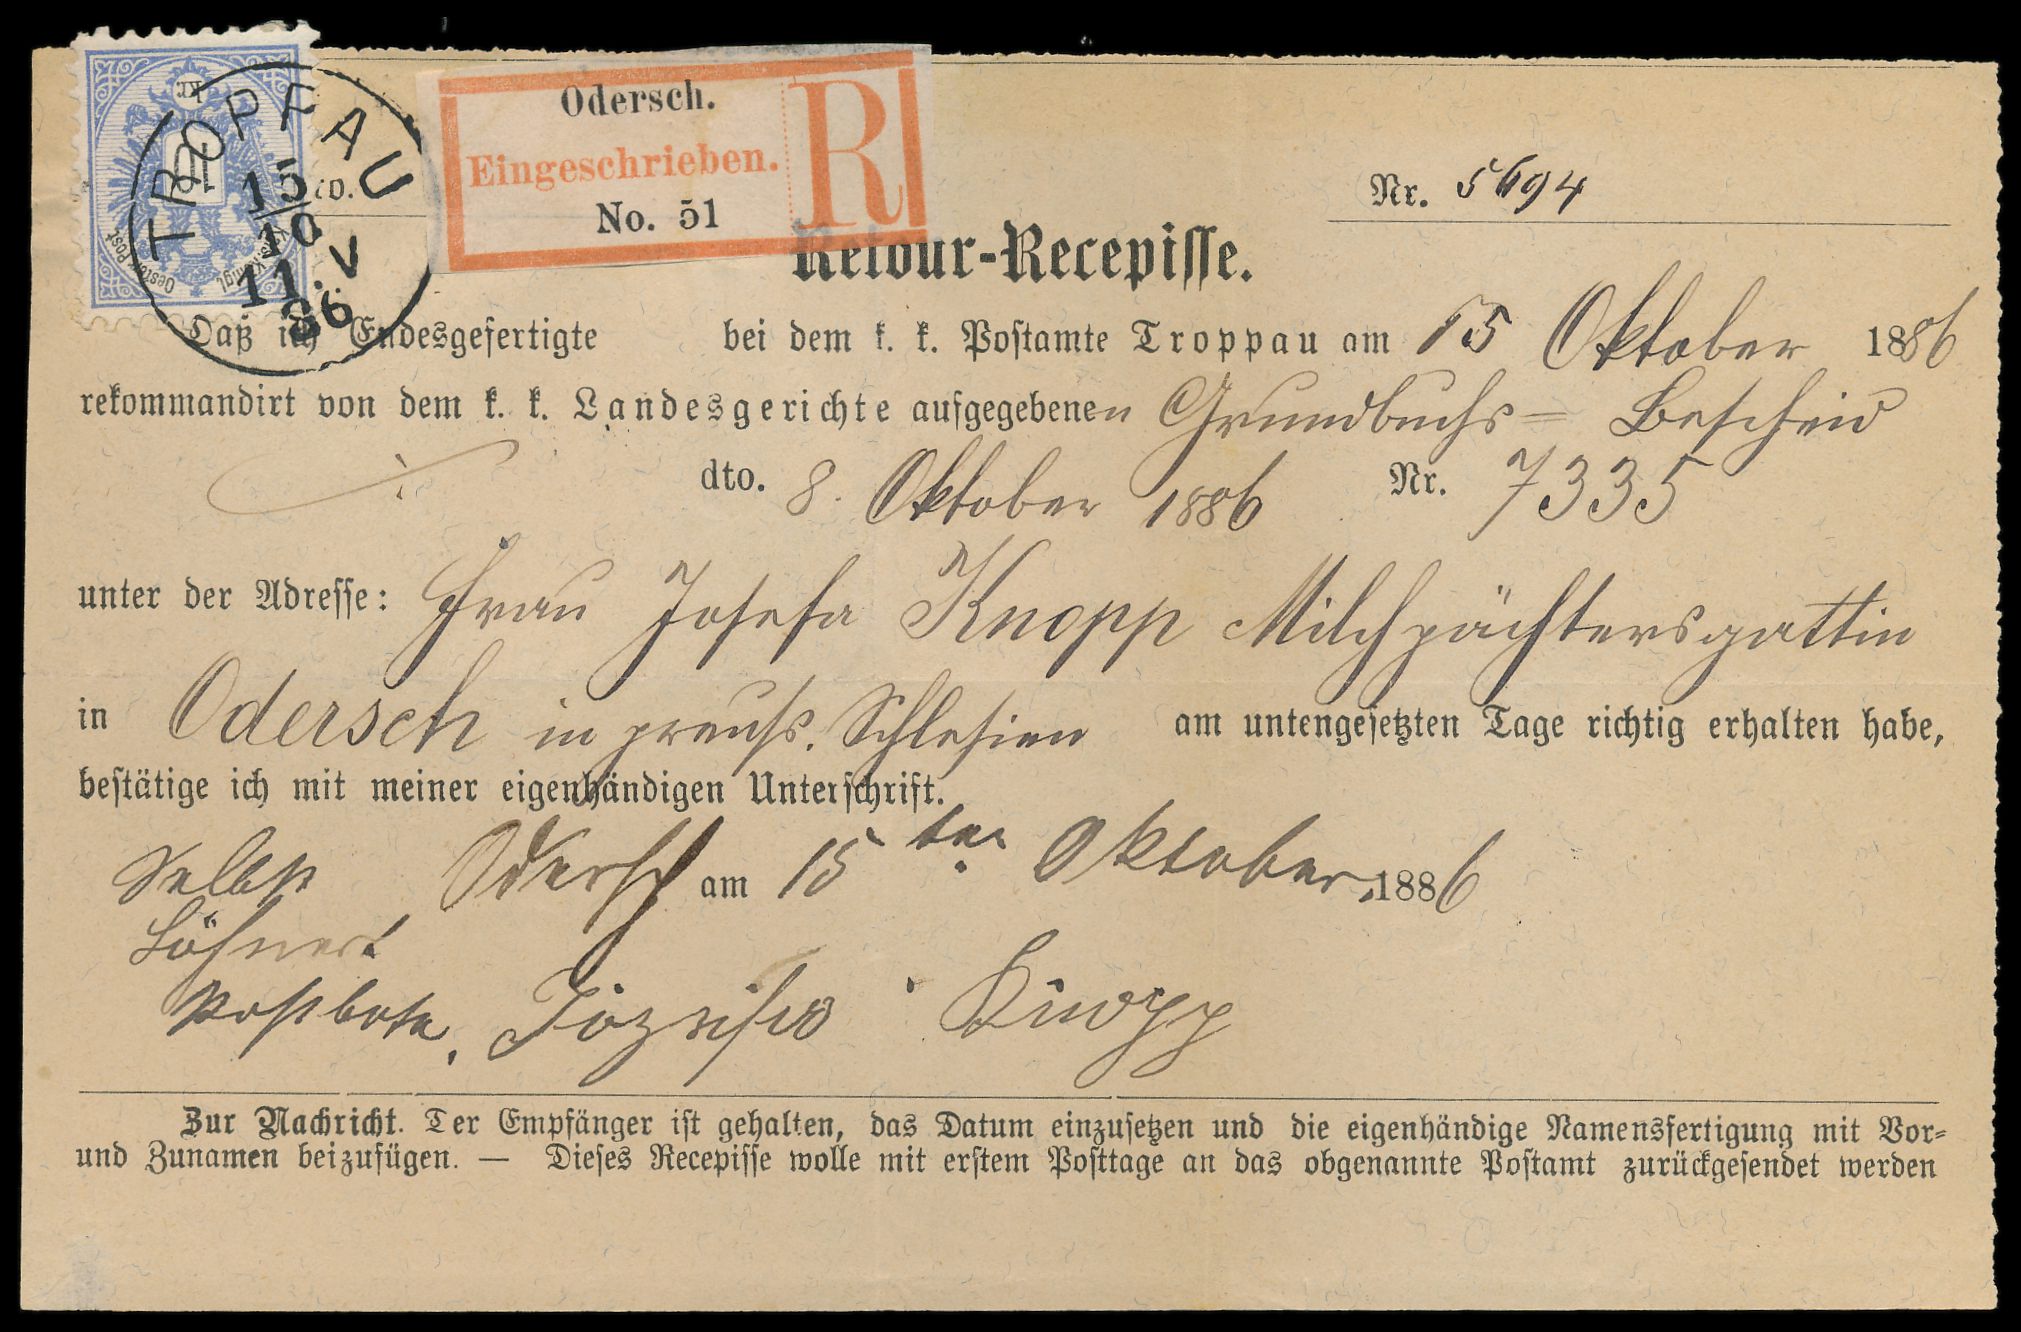 TROPPAU
15/10
11.V
86
Kr
10
Kais. Königl. Oesterr. Post
co.
Odersch.
Eingeschrieben.
No. 51
R
Nr. 5694
Retour-Recepisse.
Daß ich Endesgefertigte bei dem k. k. Postamte Troppau am 15 Oktober 1886
rekommandirt von dem k. k. Landesgerichte aufgegebenen Grundbuchs= Bescheid
dto. 8. Oktober 1886 Nr. 7335
unter der Adresse: Frau Josefa Knopp Milchpächtersgattin
in Odersch in preuß. Schlesien am untengesetzten Tage richtig erhalten habe,
bestätige ich mit meiner eigenhändigen Unterschrift.
Selbst Odersch am 15ten Oktober 1886
Löhnert
Postbote. Knopp
Zur Nachricht. Der Empfänger ist gehalten, das Datum einzusetzen und die eigenhändige Namensfertigung mit Vor=
und Zunamen beizufügen. — Dieses Recepisse wolle mit erstem Posttage an das obgenannte Postamt zurückgesendet werden